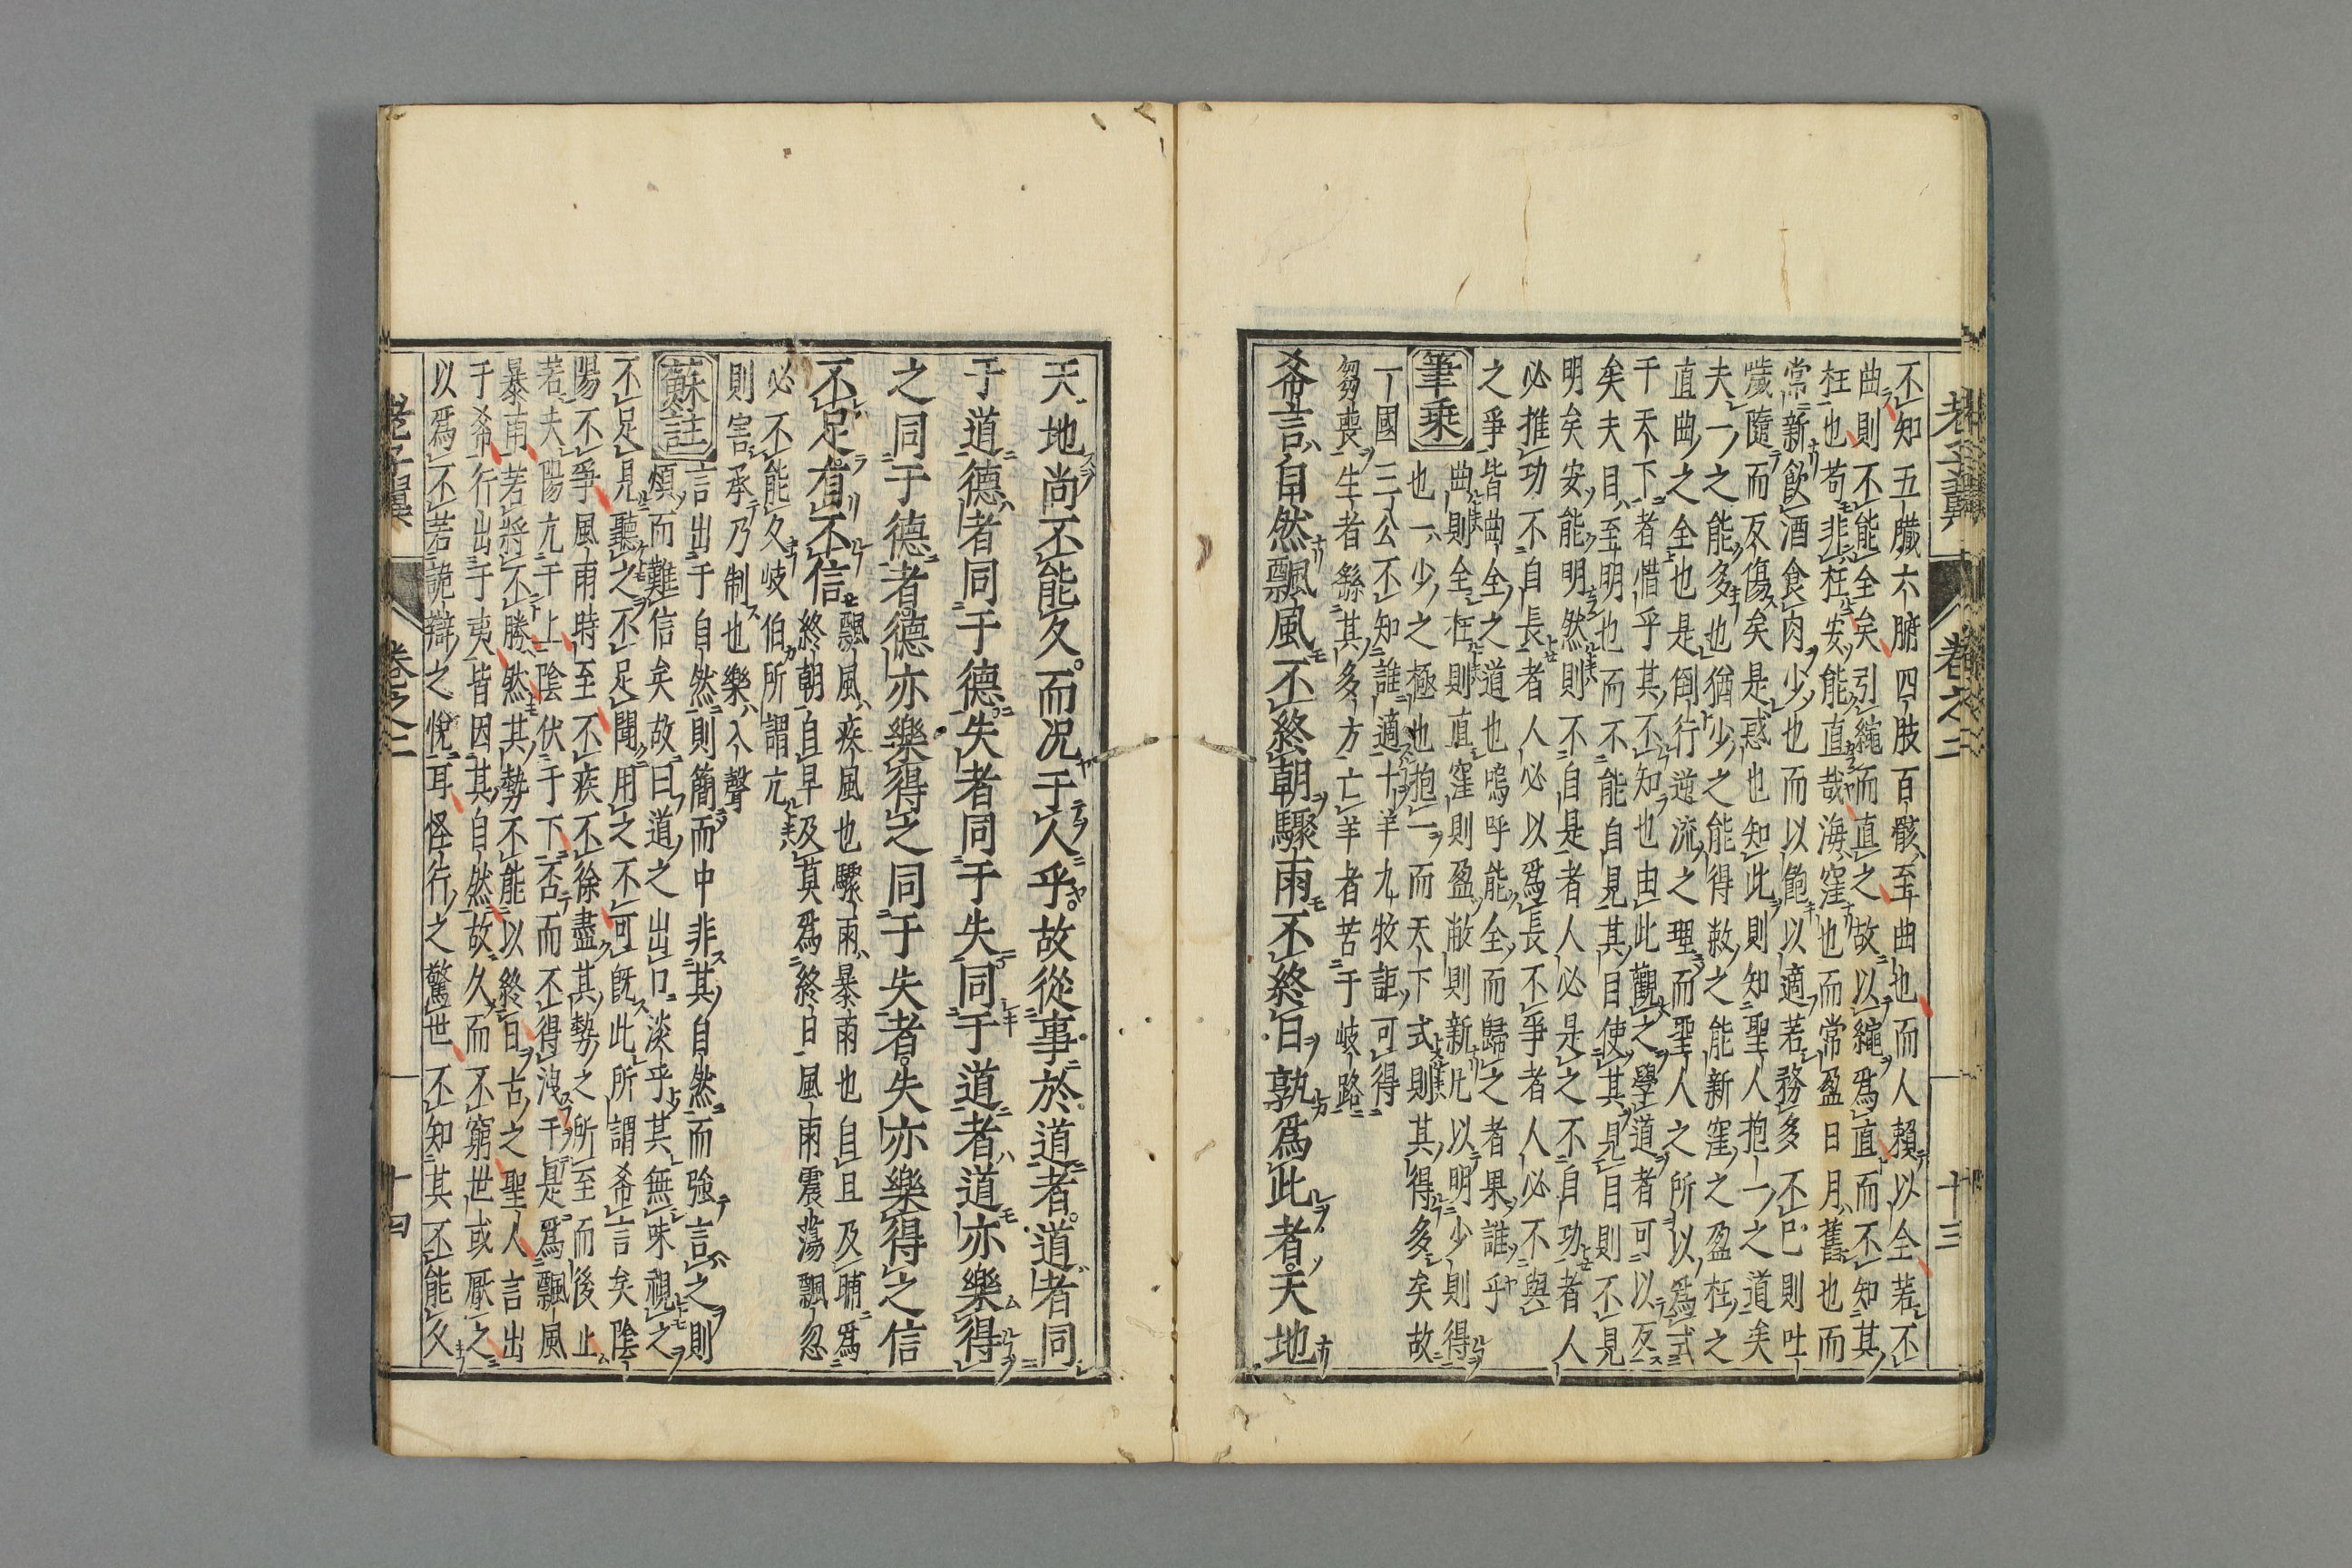 老子翼 卷之二 十三
不知五臟六腑四肢百骸至曲也而人賴以全若不
曲則不能全矣引繩而直之故以繩爲直而不知其
枉也苟非枉安能直哉海窪也而常盈日月舊也而
常新飲酒食肉少也而以飽以適若務多不巳則吐
歲隨而反傷矣是惑也知此則知聖人抱一之道矣
夫一之能多也猶少之能得敝之能新窪之盈枉之
直曲之全也是倒行逆流之理而聖人之所以爲式
于天下者惜乎其不知也由此觀之學道者可以反
矣夫目至明也而不能自見其目使其見目則不見
明矣安能明然則不自是者人必是之不自功者人
必推功不自長者人必以爲長不爭者人必不與
之爭皆曲全之道也嗚呼能全而歸之者果誰乎
筆乗 曲則全枉則直窪則盈敝則新凡以明少則得
也一少之極也抱一而天下式則其得多矣故
一國三公不知誰適十羊九牧詎可得
芻喪生者繇其多方亡羊者苦于岐路
希言自然飄風不終朝驟雨不終日孰爲此者天地
天地尚不能久而况于人乎故從事於道者道者同
于道德者同于德失者同于失同于道者道亦樂得
之同于德者德亦樂得之同于失者失亦樂得之信
不足有不信 飄風疾風也驟雨暴雨也自且及晡爲
終朝自早及莫爲終日風雨震蕩飄忽
必不能久岐伯所謂亢
則害承乃制也樂入聲
蘇註 言出于自然則簡而中非其自然而強言之則
煩而難信矣故曰道之出口淡乎其無味視之
不足見聽之不足聞用之不可旣此所謂希言矣陰
陽不爭風雨時至不疾不徐盡其勢之所至而後止
若夫陽亢于上陰伏于下否而不得洩于是爲飄風
暴雨若將不勝然其勢不能以終日古之聖人言出
于希行出于夷皆因其自然故久而不窮世或厭之
以爲不若詭辯之悅耳怪行之驚世不知其不能久
老子翼 卷之二 十四